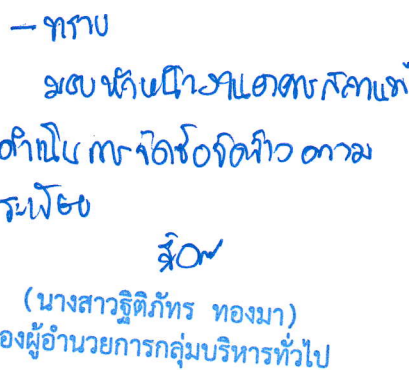 - ทราบ
มอบหัวหน้างานอาคารสถานที่
ดำเนินการจัดซื้อจัดจ้าง ตาม
ระเบียบ
(นางสาวฐิติภัทร ทองมา)
องผู้อำนวยการกลุ่มบริหารทั่วไป